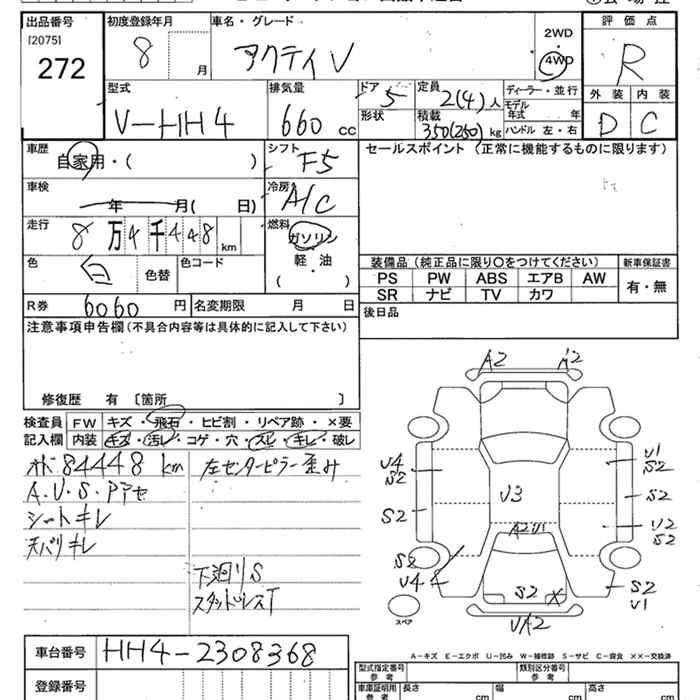 出品番号
[2075]
272
初度登録年月
8 月
車名・グレード
アクティ V
2WD
4WD
評価点
R
外装 内装
D C
型式
V-HH4
排気量
660 cc
ドア 5
形状
定員 2(4) 人
積載 350(250) kg
ディーラー・並行
モデル年式 年
ハンドル 左・右
車歴
自家用・( )
シフト F5
車検
年 月( 日)
冷房 A/C
走行
8 万 4 千 4 4 8 km
燃料
ガソリン
軽・油
( )
色 白 色替
色コード
R券 6060 円
名変期限 月 日
セールスポイント (正常に機能するものに限ります)
装備品(純正品に限り〇をつけてください)
新車保証書
PS PW ABS エアB AW
SR ナビ TV カワ
有・無
後日品
注意事項申告欄(不具合内容等は具体的に記入して下さい)
修復歴 有 〔箇所 〕
検査員 FW キズ・飛石・ヒビ割・リペア跡・×要
記入欄 内装 キズ・汚レ・コゲ・穴・スレ・キレ・破レ
84448 km
左センターピラー歪み
A.U.S.
シートキレ
天バリキレ
下廻りS
スタッドレスT
A2 A2
U4
S2
S2
S2
U4
U3
A2 U1
S2 X
UA2
U1
S2
S2
U2
S2
S2
U1
スペア
A-キズ E-エクボ U-凹み W-補修跡 S-サビ C-腐食 XX-交換済
車台番号 HH4-2308368
登録番号
型式指定番号
参考
類別区分番号
参考
車庫証明用
参考
長さ cm 幅 cm 高さ cm